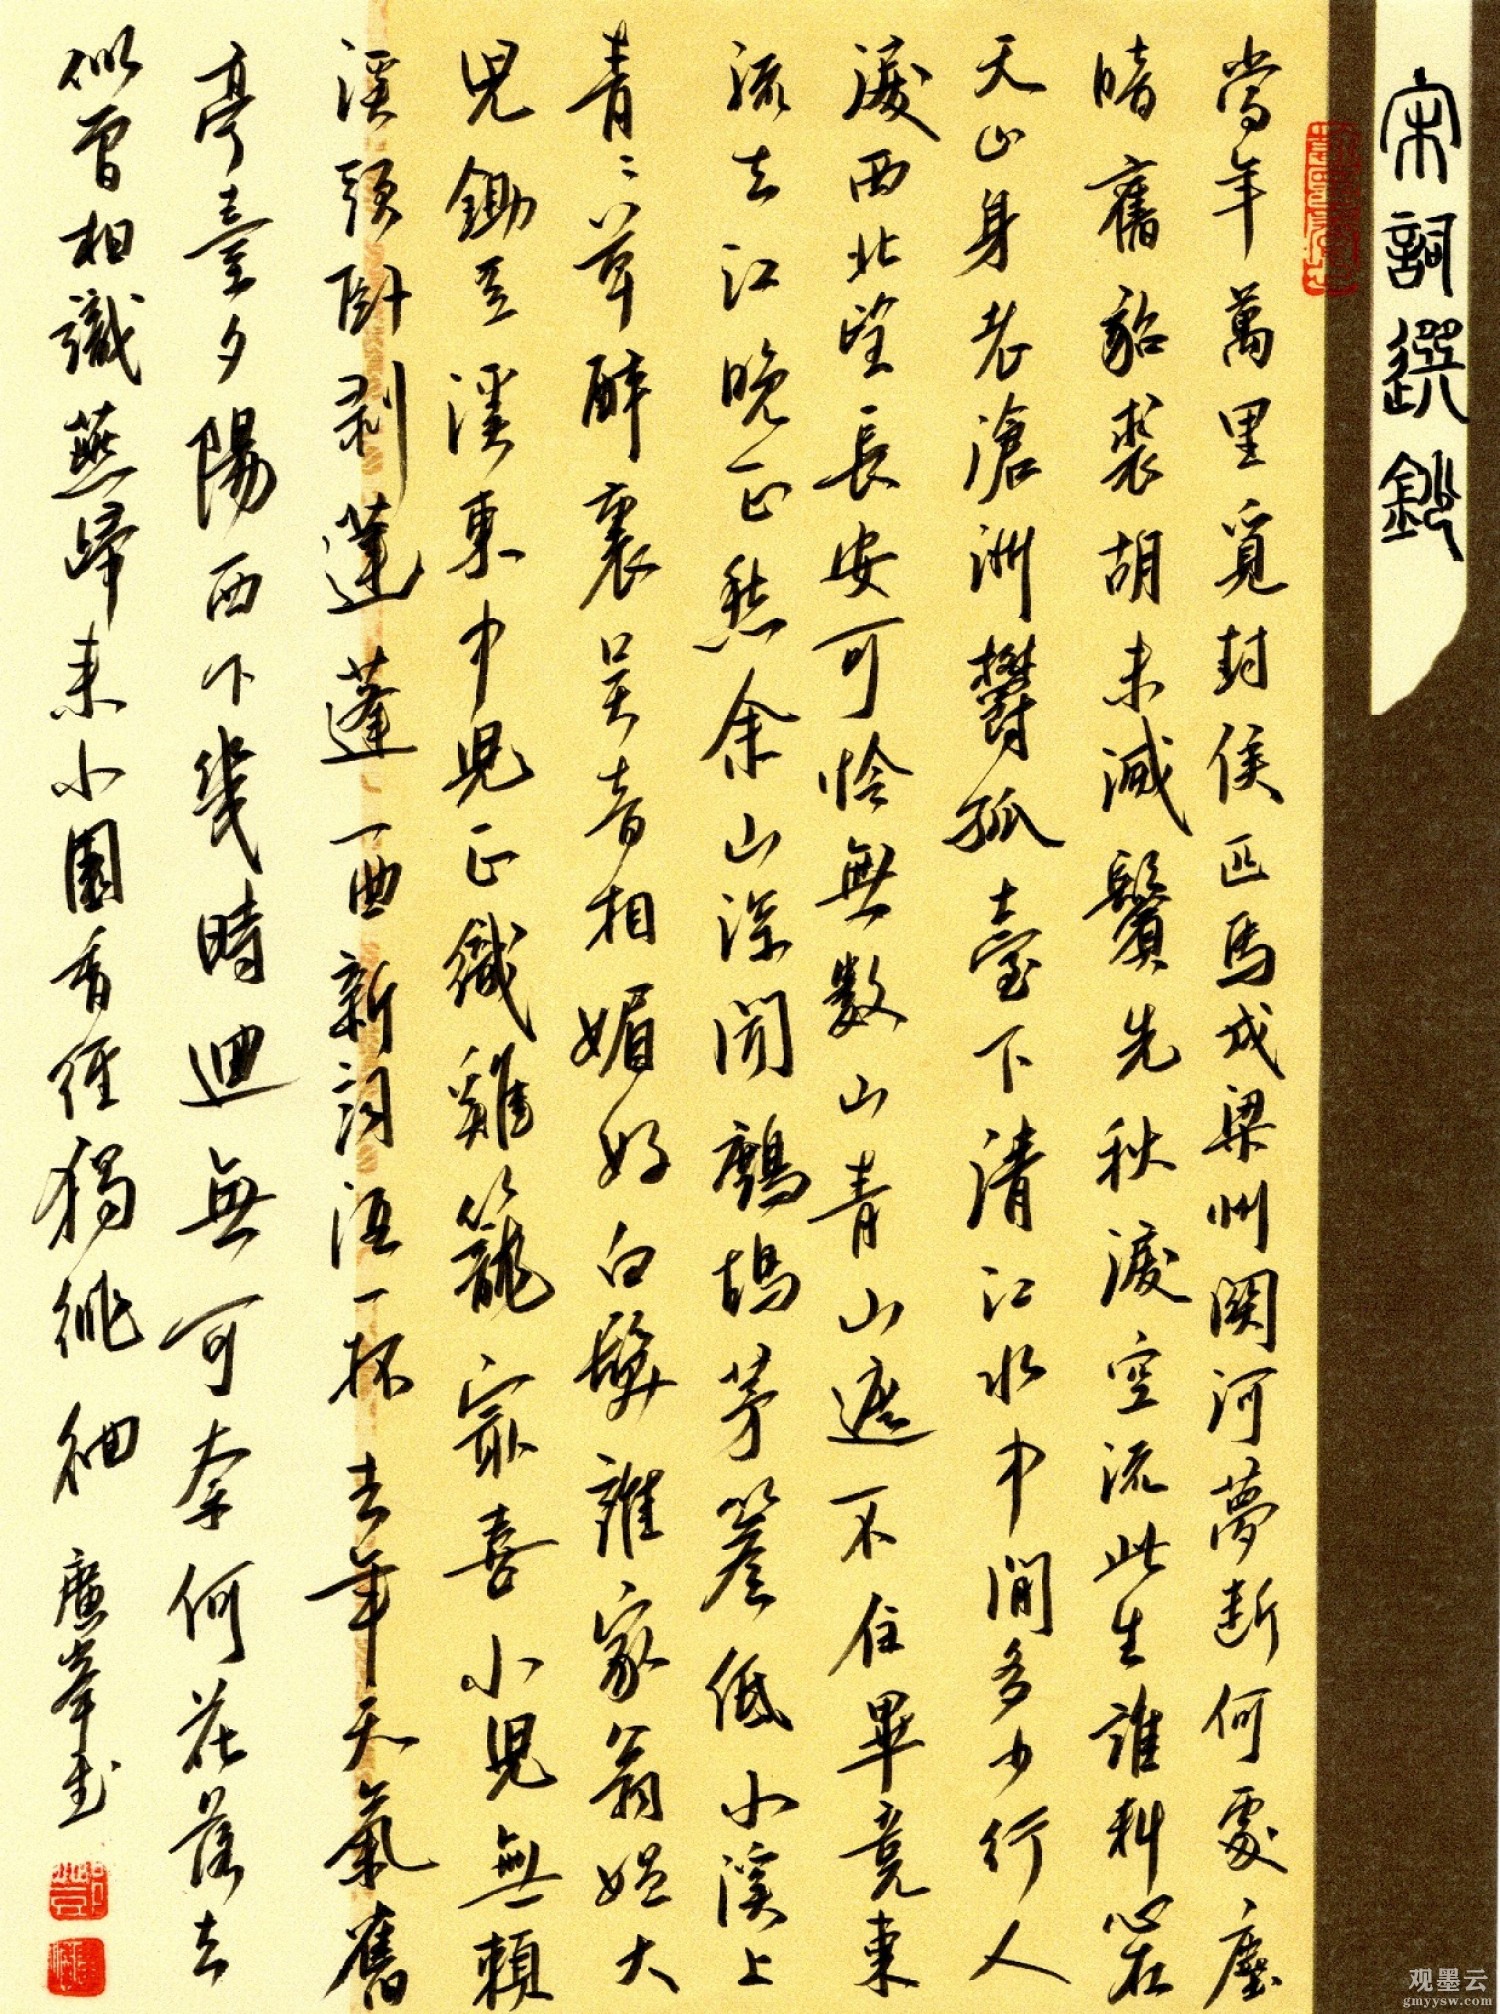 宋詞選鈔
當年萬里覓封侯匹馬戍梁州關河夢斷何處塵
暗舊貂裘胡未滅鬢先秋淚空流此生誰料心在
天山身老滄洲鬱孤臺下清江水中間多少行人
淚西北望長安可怜無數山青山遮不住畢竟東
流去江晚正愁余山深聞鷓鴣茅簷低小溪上
青〻草醉裏吳音相媚好白髮誰家翁媼大
兒鋤豆溪東中兒正織雞籠最喜小兒無賴
溪頭臥剝蓮蓬一曲新詞酒一杯去年天氣舊
亭臺夕陽西下幾時迴無可奈何花落去
似曾相識燕歸來小園香徑獨徘徊 廣峯書
观墨云
gmyysw.com